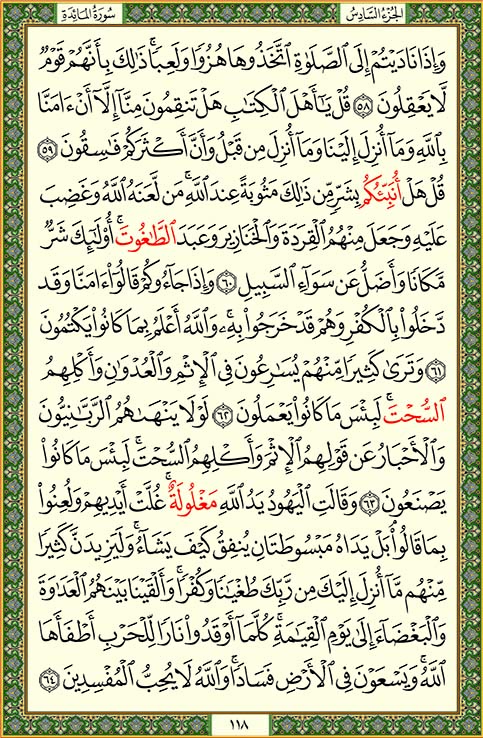 سُورَةُ المَائدَةِ
الجُزءُ السَّادِسُ
وَإِذَا نَادَيْتُمْ إِلَى ٱلصَّلَوٰةِ ٱتَّخَذُوهَا هُزُوًا وَلَعِبًا ۚ ذَٰلِكَ بِأَنَّهُمْ قَوْمٌ
لَّا يَعْقِلُونَ ٥٨ قُلْ يَـٰٓأَهْلَ ٱلْكِتَـٰبِ هَلْ تَنقِمُونَ مِنَّآ إِلَّآ أَنْ ءَامَنَّا
بِٱللَّهِ وَمَآ أُنزِلَ إِلَيْنَا وَمَآ أُنزِلَ مِن قَبْلُ وَأَنَّ أَكْثَرَكُمْ فَـٰسِقُونَ ٥٩
قُلْ هَلْ أُنَبِّئُكُم بِشَرٍّ مِّن ذَٰلِكَ مَثُوبَةً عِندَ ٱللَّهِ ۚ مَن لَّعَنَهُ ٱللَّهُ وَغَضِبَ
عَلَيْهِ وَجَعَلَ مِنْهُمُ ٱلْقِرَدَةَ وَٱلْخَنَازِيرَ وَعَبَدَ ٱلطَّـٰغُوتَ ۚ أُو۟لَـٰٓئِكَ شَرٌّ
مَّكَانًا وَأَضَلُّ عَن سَوَآءِ ٱلسَّبِيلِ ٦٠ وَإِذَا جَآءُوكُمْ قَالُوٓا۟ ءَامَنَّا وَقَد
دَّخَلُوا۟ بِٱلْكُفْرِ وَهُمْ قَدْ خَرَجُوا۟ بِهِۦ ۚ وَٱللَّهُ أَعْلَمُ بِمَا كَانُوا۟ يَكْتُمُونَ
٦١ وَتَرَىٰ كَثِيرًا مِّنْهُمْ يُسَـٰرِعُونَ فِى ٱلْإِثْمِ وَٱلْعُدْوَٰنِ وَأَكْلِهِمُ
ٱلسُّحْتَ ۚ لَبِئْسَ مَا كَانُوا۟ يَعْمَلُونَ ٦٢ لَوْلَا يَنْهَىٰهُمُ ٱلرَّبَّـٰنِيُّونَ
وَٱلْأَحْبَارُ عَن قَوْلِهِمُ ٱلْإِثْمَ وَأَكْلِهِمُ ٱلسُّحْتَ ۚ لَبِئْسَ مَا كَانُوا۟
يَصْنَعُونَ ٦٣ وَقَالَتِ ٱلْيَهُودُ يَدُ ٱللَّهِ مَغْلُولَةٌ ۚ غُلَّتْ أَيْدِيهِمْ وَلُعِنُوا۟
بِمَا قَالُوا۟ ۘ بَلْ يَدَاهُ مَبْسُوطَتَانِ يُنفِقُ كَيْفَ يَشَآءُ ۚ وَلَيَزِيدَنَّ كَثِيرًا
مِّنْهُم مَّآ أُنزِلَ إِلَيْكَ مِن رَّبِّكَ طُغْيَـٰنًا وَكُفْرًا ۚ وَأَلْقَيْنَا بَيْنَهُمُ ٱلْعَدَٰوَةَ
وَٱلْبَغْضَآءَ إِلَىٰ يَوْمِ ٱلْقِيَـٰمَةِ ۚ كُلَّمَآ أَوْقَدُوا۟ نَارًا لِّلْحَرْبِ أَطْفَأَهَا
ٱللَّهُ ۚ وَيَسْعَوْنَ فِى ٱلْأَرْضِ فَسَادًا ۚ وَٱللَّهُ لَا يُحِبُّ ٱلْمُفْسِدِينَ ٦٤
١١٨